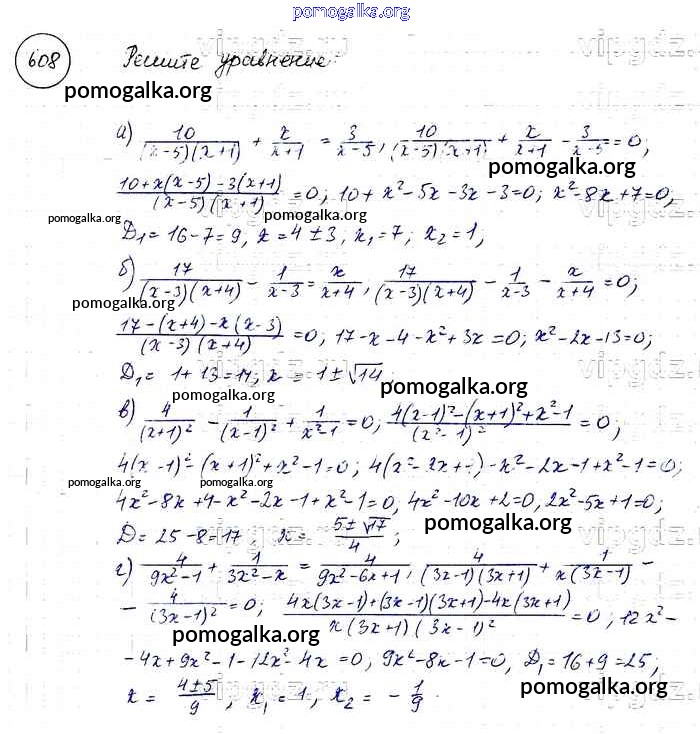 pomogalka.org
608 Решите уравнение:
pomogalka.org
а) 10/((x-5)(x+1)) + x/(x+1) = 3/(x-5), 10/((x-5)(x+1)) + x/(x+1) - 3/(x-5) = 0;
pomogalka.org
(10+x(x-5)-3(x+1))/((x-5)(x+1)) = 0; 10+x²-5x-3x-3=0; x²-8x+7=0,
pomogalka.org pomogalka.org
D₁=16-7=9, x=4±3, x₁=7; x₂=1;
б) 17/((x-3)(x+4)) - 1/(x-3) = x/(x+4), 17/((x-3)(x+4)) - 1/(x-3) - x/(x+4) = 0;
pomogalka.org
(17-(x+4)-x(x-3))/((x-3)(x+4)) = 0, 17-x-4-x²+3x=0; x²-2x-13=0;
D₁= 1+13=14, x = 1±√14
pomogalka.org
pomogalka.org
в) 4/(x+1)² - 1/(x-1)² + 1/(x²-1) = 0; (4(x-1)²-(x+1)²+x²-1)/(x²-1)² = 0,
4(x-1)²-(x+1)²+x²-1=0; 4(x²-2x+1)-x²-2x-1+x²-1=0;
pomogalka.org pomogalka.org pomogalka.org
4x²-8x+4-x²-2x-1+x²-1=0, 4x²-10x+2=0, 2x²-5x+1=0;
D=25-8=17, x = (5±√17)/4;
pomogalka.org
г) 4/(9x²-1) + 1/(3x²-x) = 4/(9x²-6x+1), 4/((3x-1)(3x+1)) + 1/(x(3x-1)) -
- 4/(3x-1)² = 0; (4x(3x-1)+(3x-1)(3x+1)-4x(3x+1))/(x(3x+1)(3x-1)²) = 0; 12x²-
pomogalka.org
-4x+9x²-1-12x²-4x=0, 9x²-8x-1=0, D₁=16+9=25;
x = (4±5)/9; x₁=1, x₂ = -1/9.
pomogalka.org